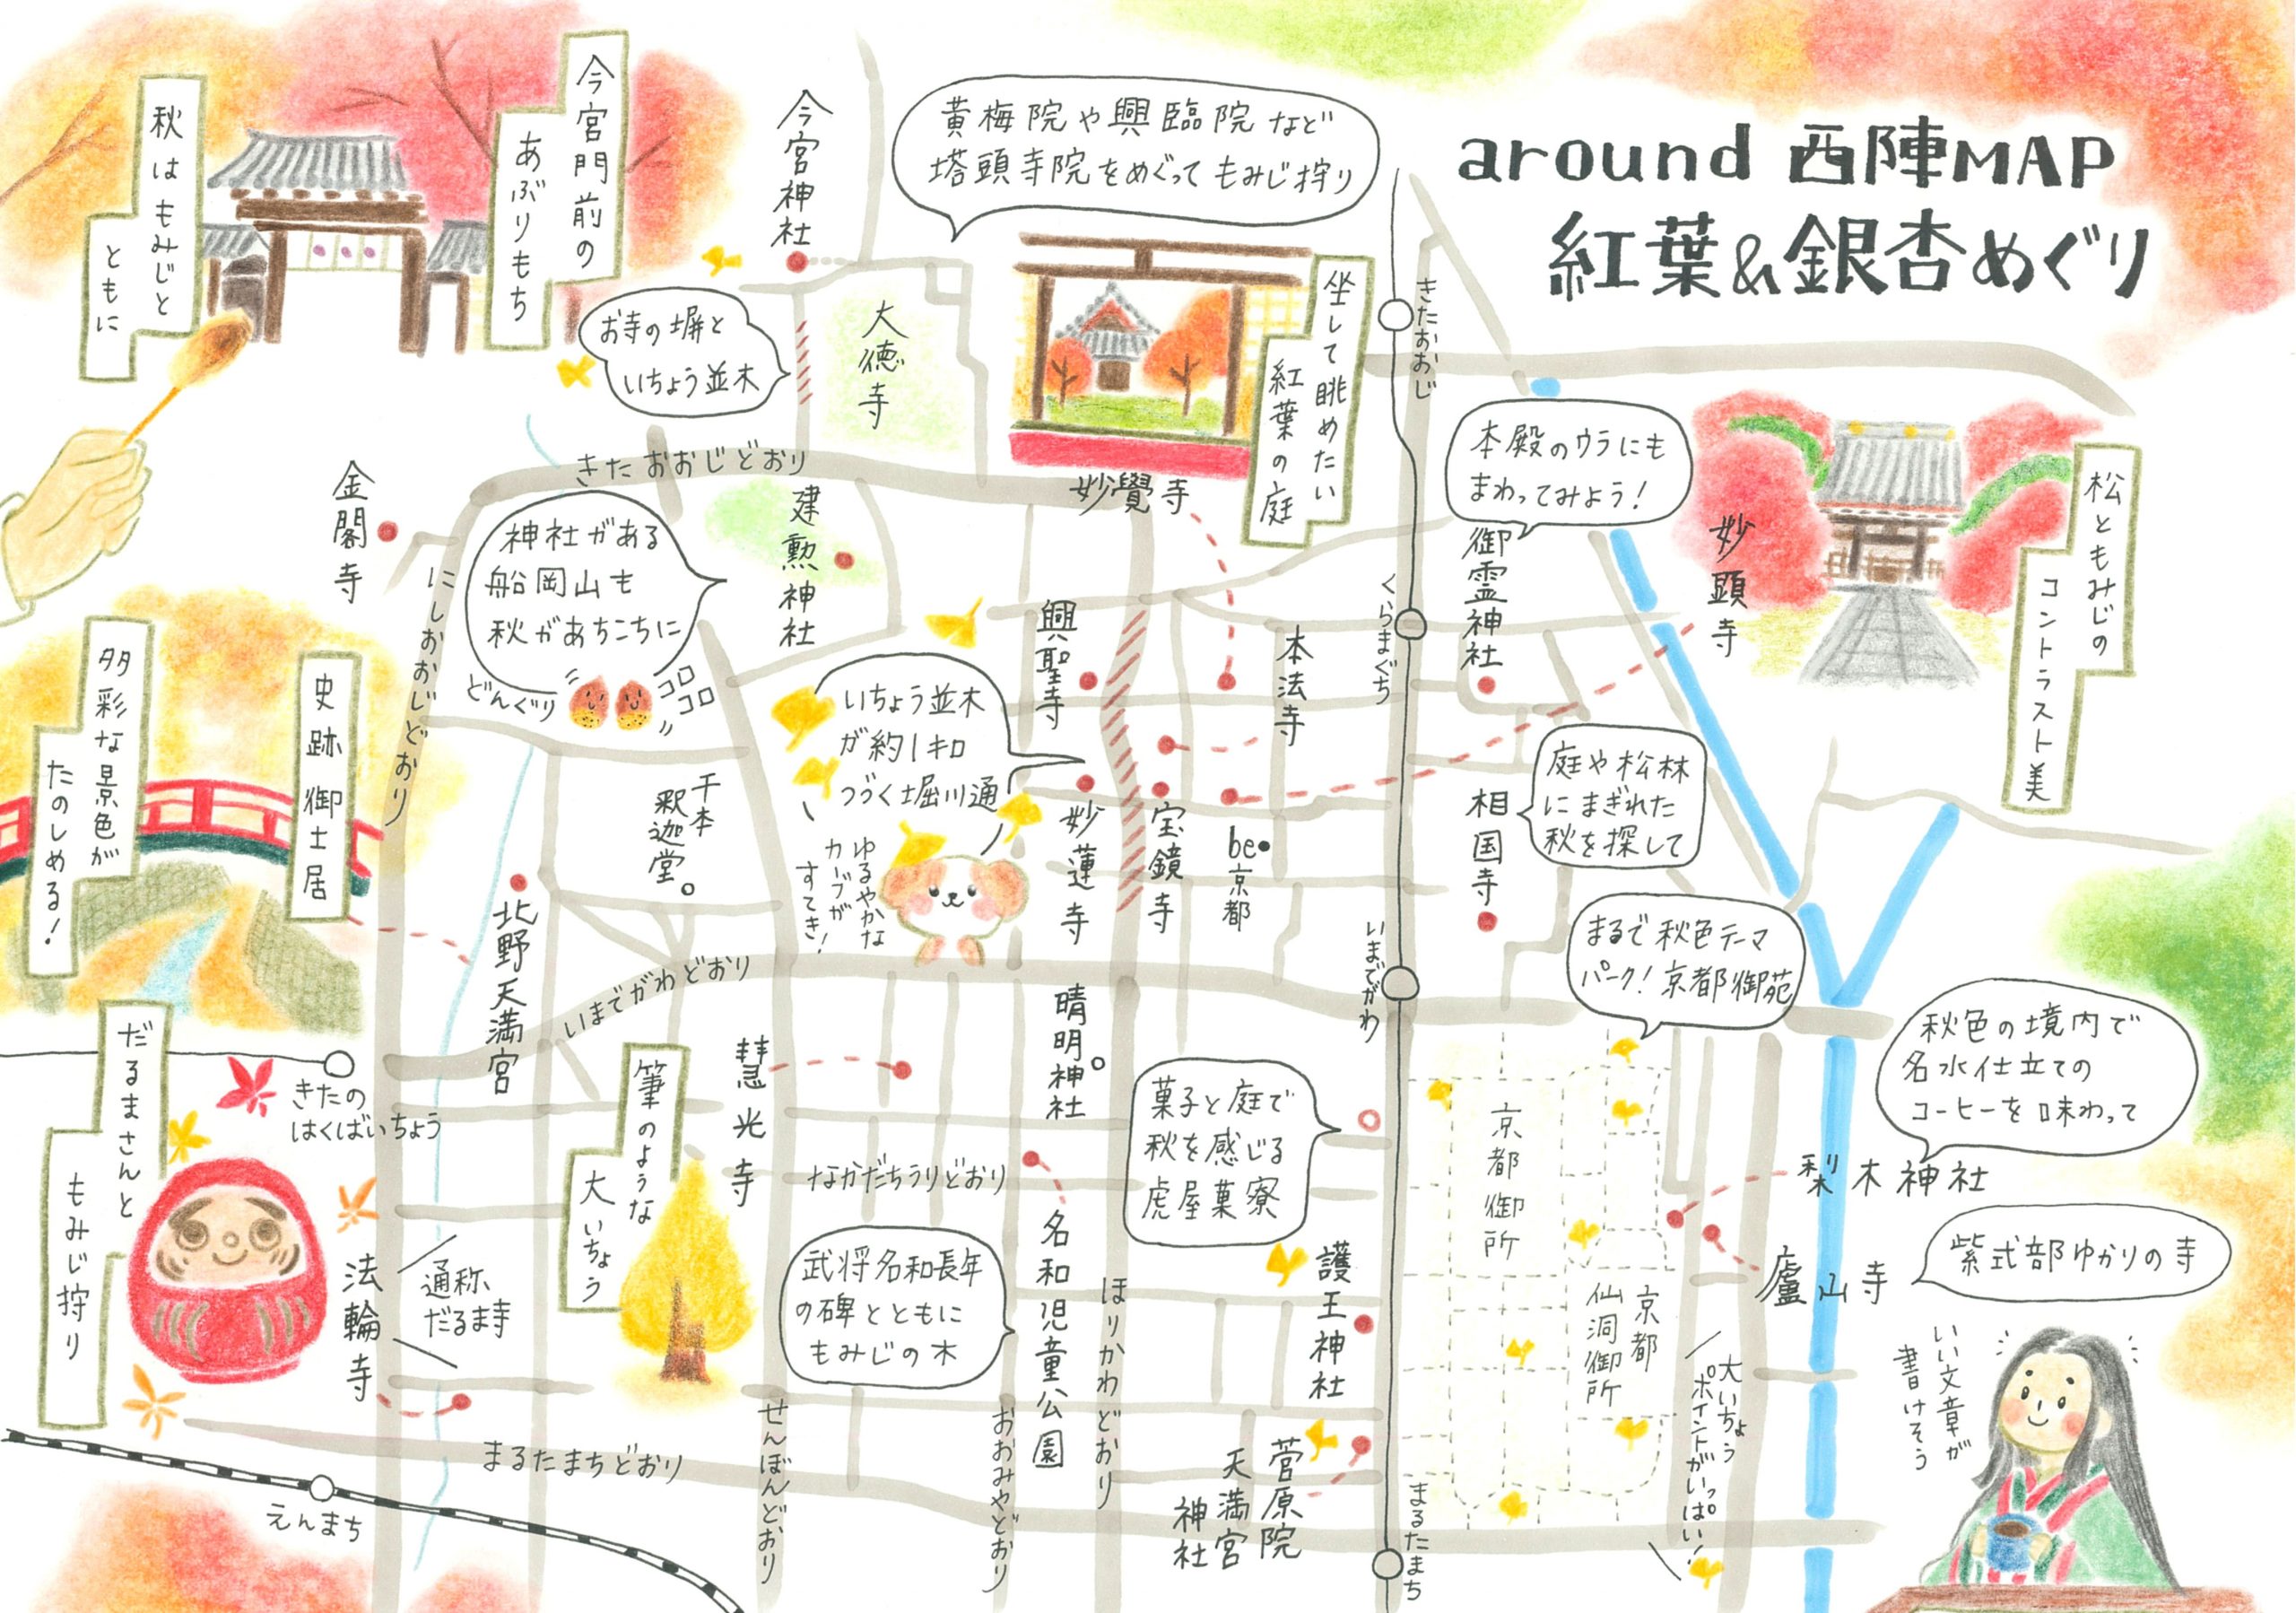 around 西陣MAP
紅葉&銀杏めぐり
今宮門前の
あぶりもち
秋はもみじと
ともに
今宮神社
黄梅院や興臨院など
塔頭寺院をめぐってもみじ狩り
お寺の塀と
いちょう並木
大徳寺
坐して眺めたい
紅葉の庭
妙覺寺
きたおおじ
きたおおじどおり
本殿のウラにも
まわってみよう!
御霊神社
妙顕寺
松ともみじの
コントラスト美
金閣寺
にしおおじどおり
神社がある
船岡山も
秋があちこちに
どんぐり
コロコロ
建勲神社
興聖寺
本法寺
くらまぐち
いちょう並木
が約1キロ
つづく堀川通
ゆるやかな
カーブが
すてき!
妙蓮寺
宝鏡寺
be京都
庭や松林
にまぎれた
秋を探して
相国寺
史跡 御土居
多彩な景色が
たのしめる!
千本
釈迦堂
北野天満宮
いまでがわどおり
いまでがわ
まるで秋色テーマ
パーク!京都御苑
晴明神社
きたの
はくばいちょう
だるまさんと
もみじ狩り
筆のような
大いちょう
慧光寺
なかだちうりどおり
菓子と庭で
秋を感じる
虎屋菓寮
京都御所
京都
仙洞御所
秋色の境内で
名水仕立ての
コーヒーを味わって
梨木神社
廬山寺
紫式部ゆかりの寺
いい文章が
書けそう
大いちょう
ポイントがいっぱい!
法輪寺
通称
だるま寺
武将名和長年
の碑とともに
もみじの木
名和児童公園
ほりかわどおり
護王神社
菅原院
天満宮
神社
まるたまちどおり
せんぼんどおり
おおみやどおり
まるたまち
えんまち